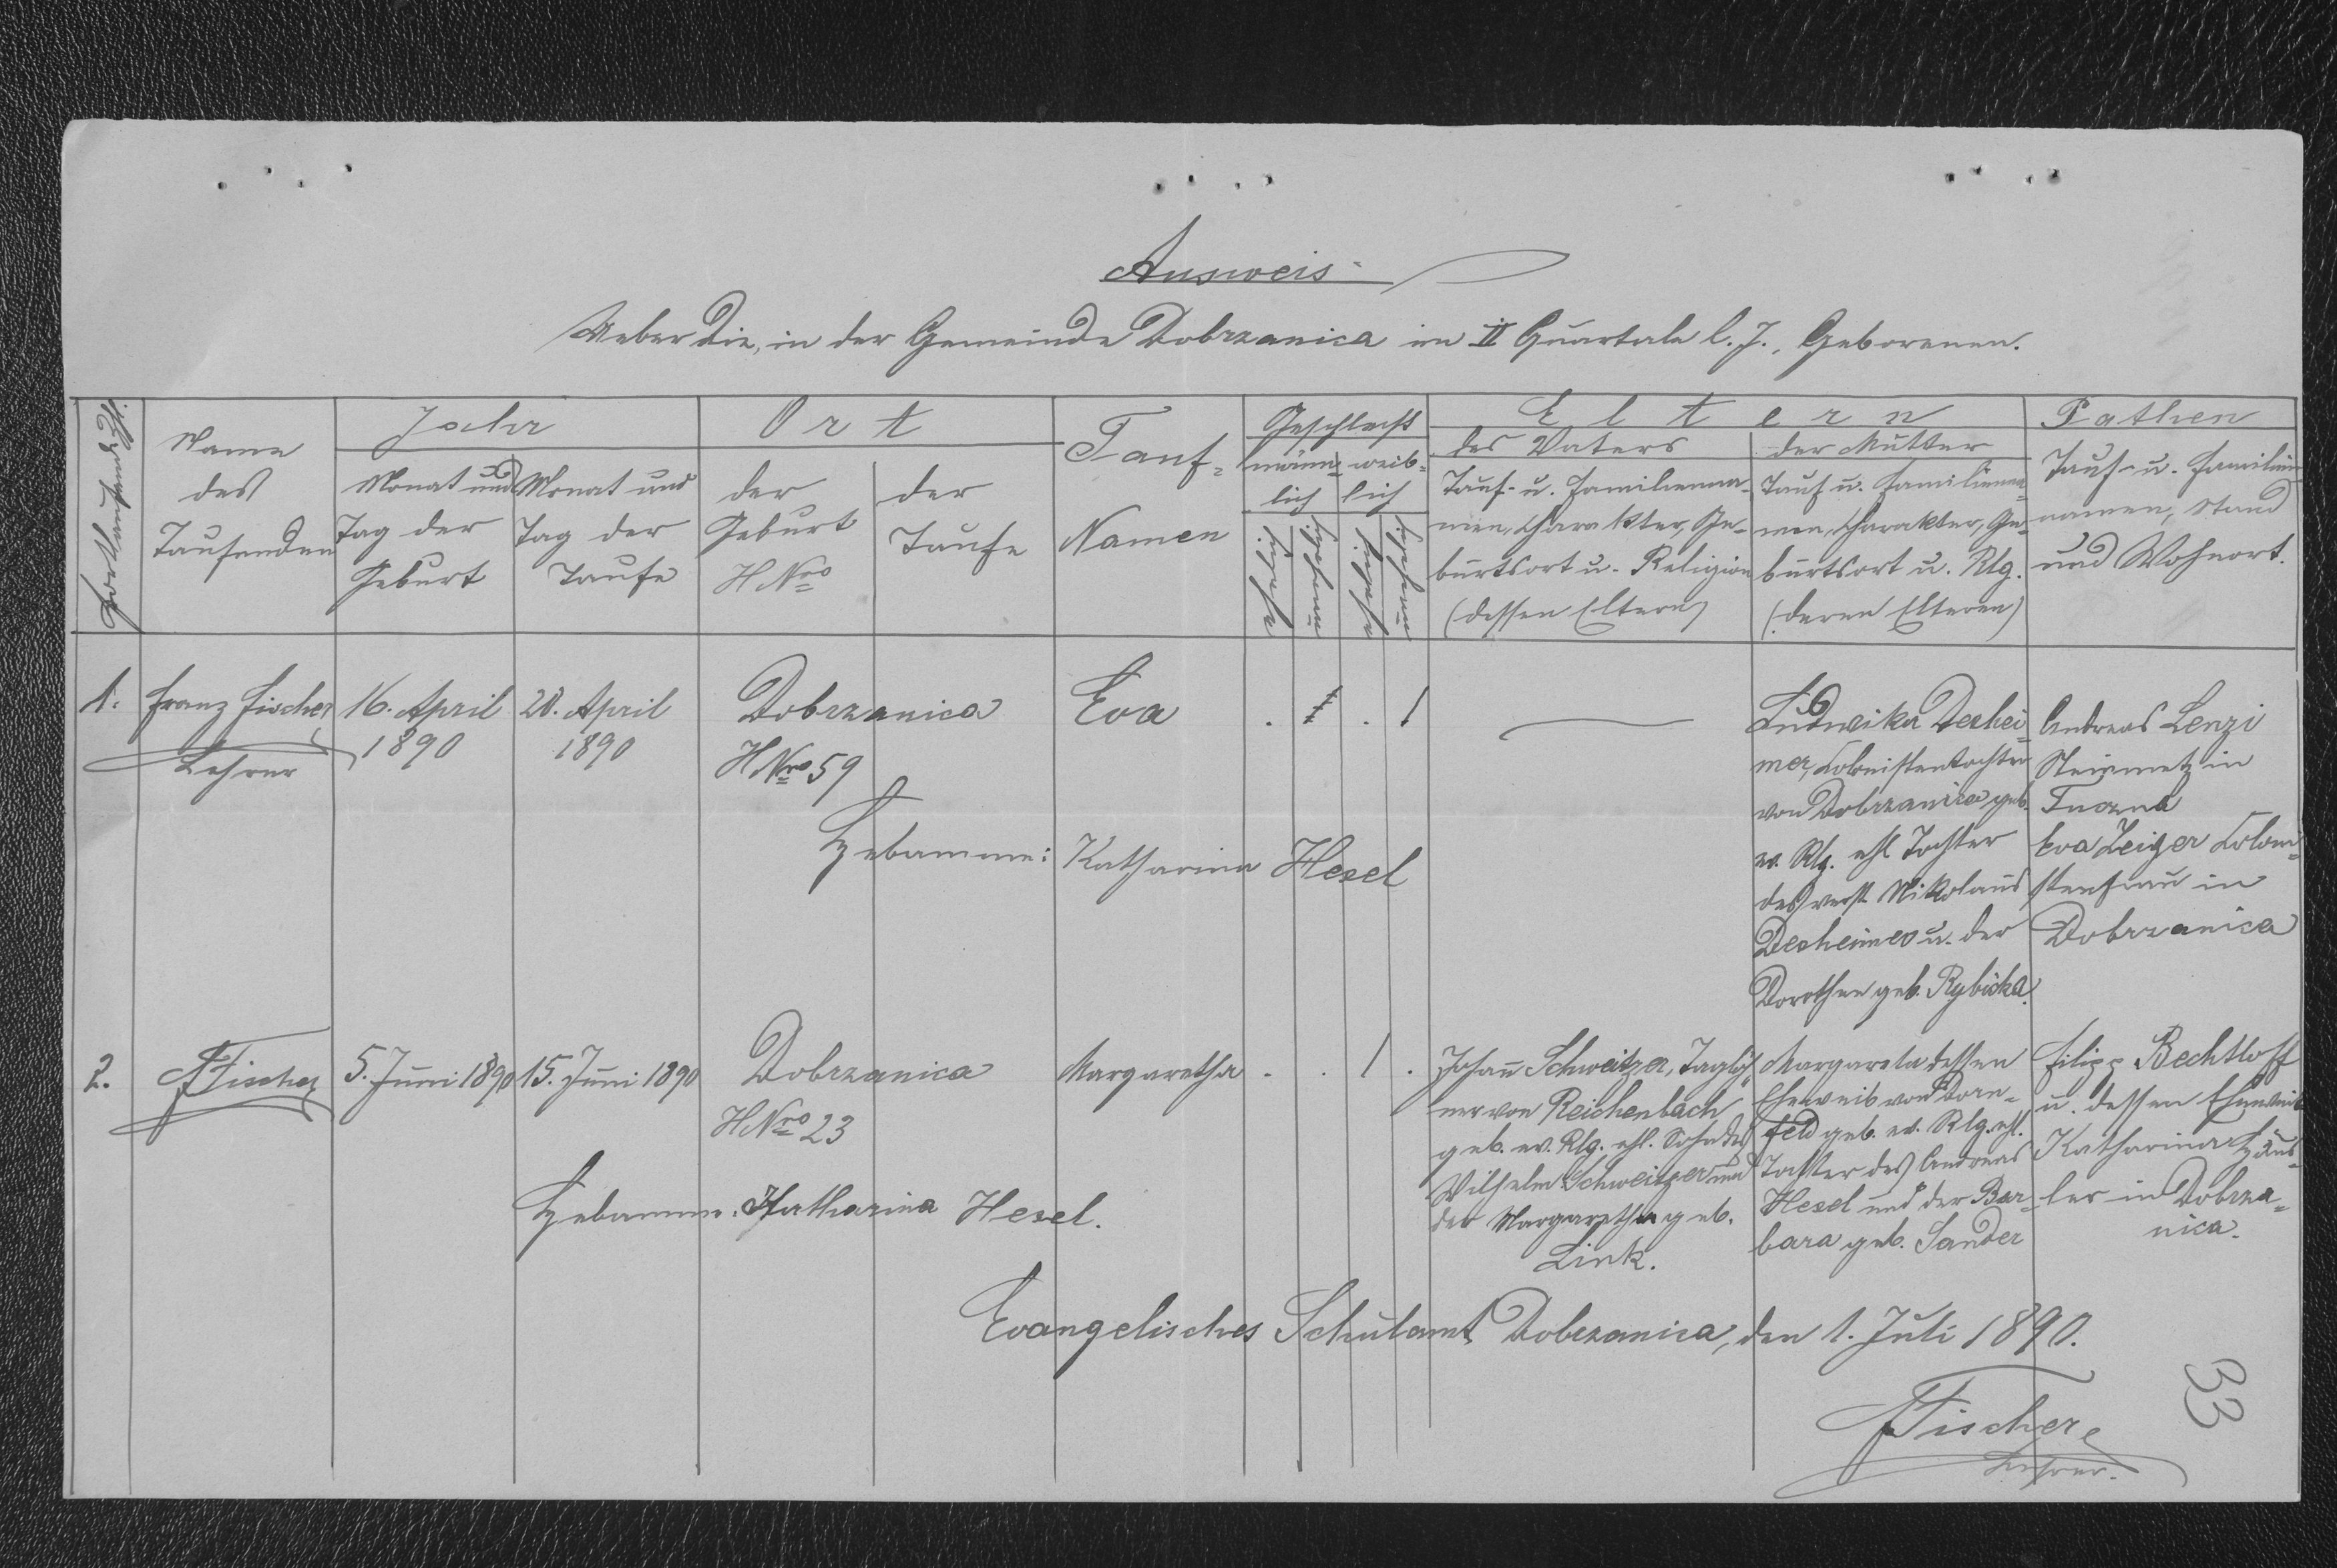 Ausweis
Ueber die, in der Gemeinde Dobrzanica im II Quartale l. J., Geborenen.
Fortlaufende Zl.
Name
des
Taufenden
Jahr
Monat und
Tag der
Geburt
Monat und
Tag der
Taufe
Ort
der
Geburt
H Nro
der
Taufe
Tauf-
Namen
Geschlecht
männ-
lich
weib-
lich
Eltern
des Vaters
Tauf- u. Familienna-
men, Charakter, Ge-
burtsort u. Religion
(dessen Eltern)
der Mutter
Tauf u. Familienna-
men, Charakter, Ge-
burtsort u. Rlg.
(deren Elteren)
Pathen
Tauf- u. Familien-
namen, Stand
und Wohnort.
1.
Franz Fischer
Lehrer
16. April
1890
20. April
1890
Dobrzanica
H Nro 59
Eva
. . 1
Ludwika Deshei-
mer, Kolonistentochter
von Dobrzanica geb.
ev. Rlg. ehl Tochter
des verst. Nikolaus
Desheimer u. der
Dorothea geb. Rybicka.
Andreas Lenzi
Steinmetz in
Eva Zeiger Koloni-
stenfrau in
Dobrzanica
Hebamme: Katharina Hesel
2.
FFischer
5. Juni 1890
15. Juni 1890
Dobrzanica
H Nro 23
Margaretha
. . 1 .
Johann Schweitzer, Taglöh-
ner von Reichenbach
geb. ev. Rlg. ehl. Sohn des
Wilhelm Schweitzer und
der Margaretha geb.
Link.
Margareta dessen
Eheweib von Dorn-
feld geb. ev. Rlg. ehl.
Tochter des Andreas
Hesel und der Bar-
bara geb. Sander
Filipp Bechtloff
u. dessen Eheweib
Katharina Häus-
ler in Dobrza-
nica.
Hebamme. Katharina Hesel.
Evangelisches Schulamt Dobrzanica, den 1. Juli 1890.
FFischer
Lehrer.
33